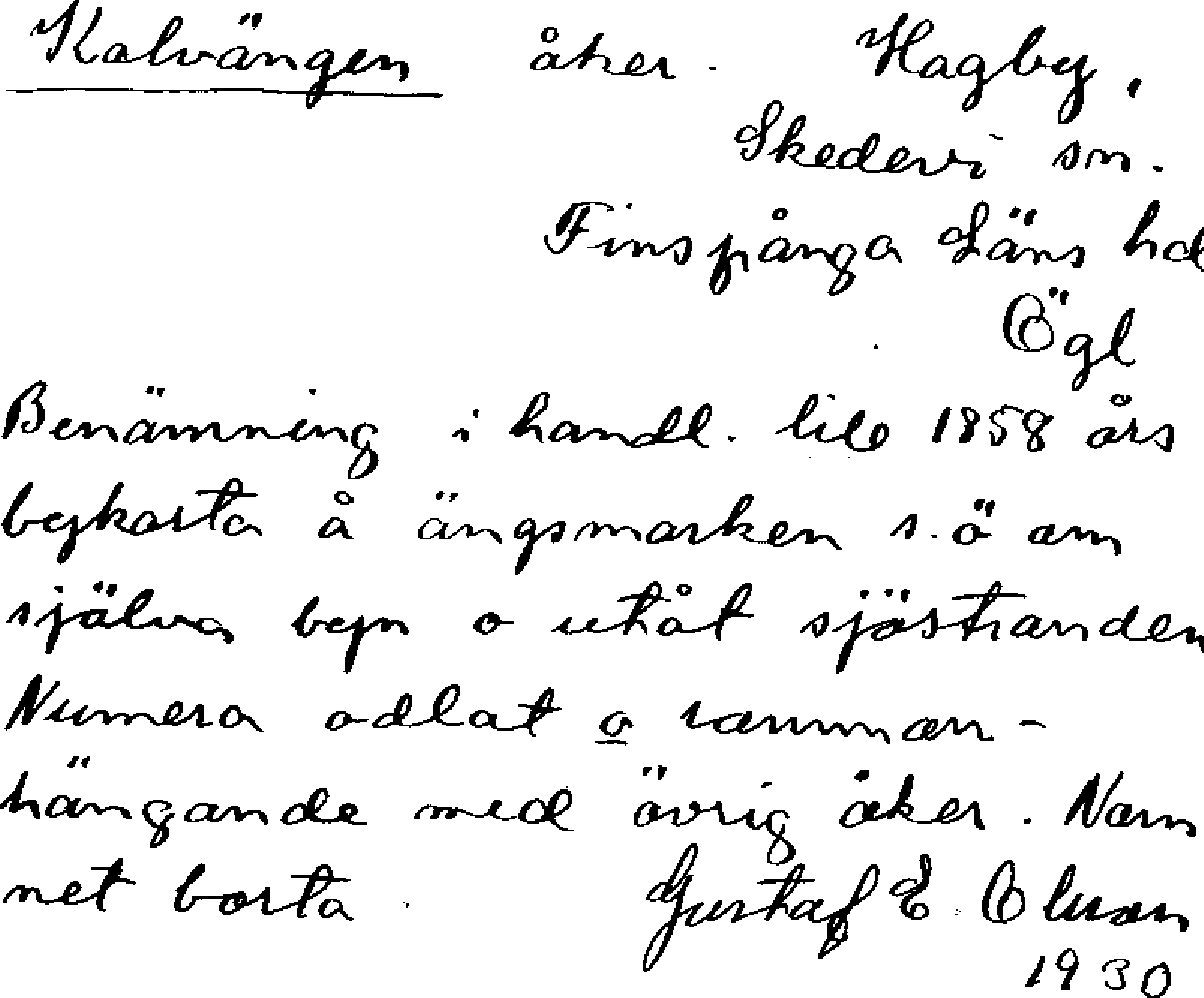 Kalvängen åker. Hagby,
Skedevi sn.
Finspånga Läns hd
Ögl
Benämning i handl. till 1858 års
bykarta å ängsmarken s.ö om
själva byn o utåt sjöstranden
Numera odlat o samman-
hängande med övrig åker. Nam
net borta. Gustaf E.
1930